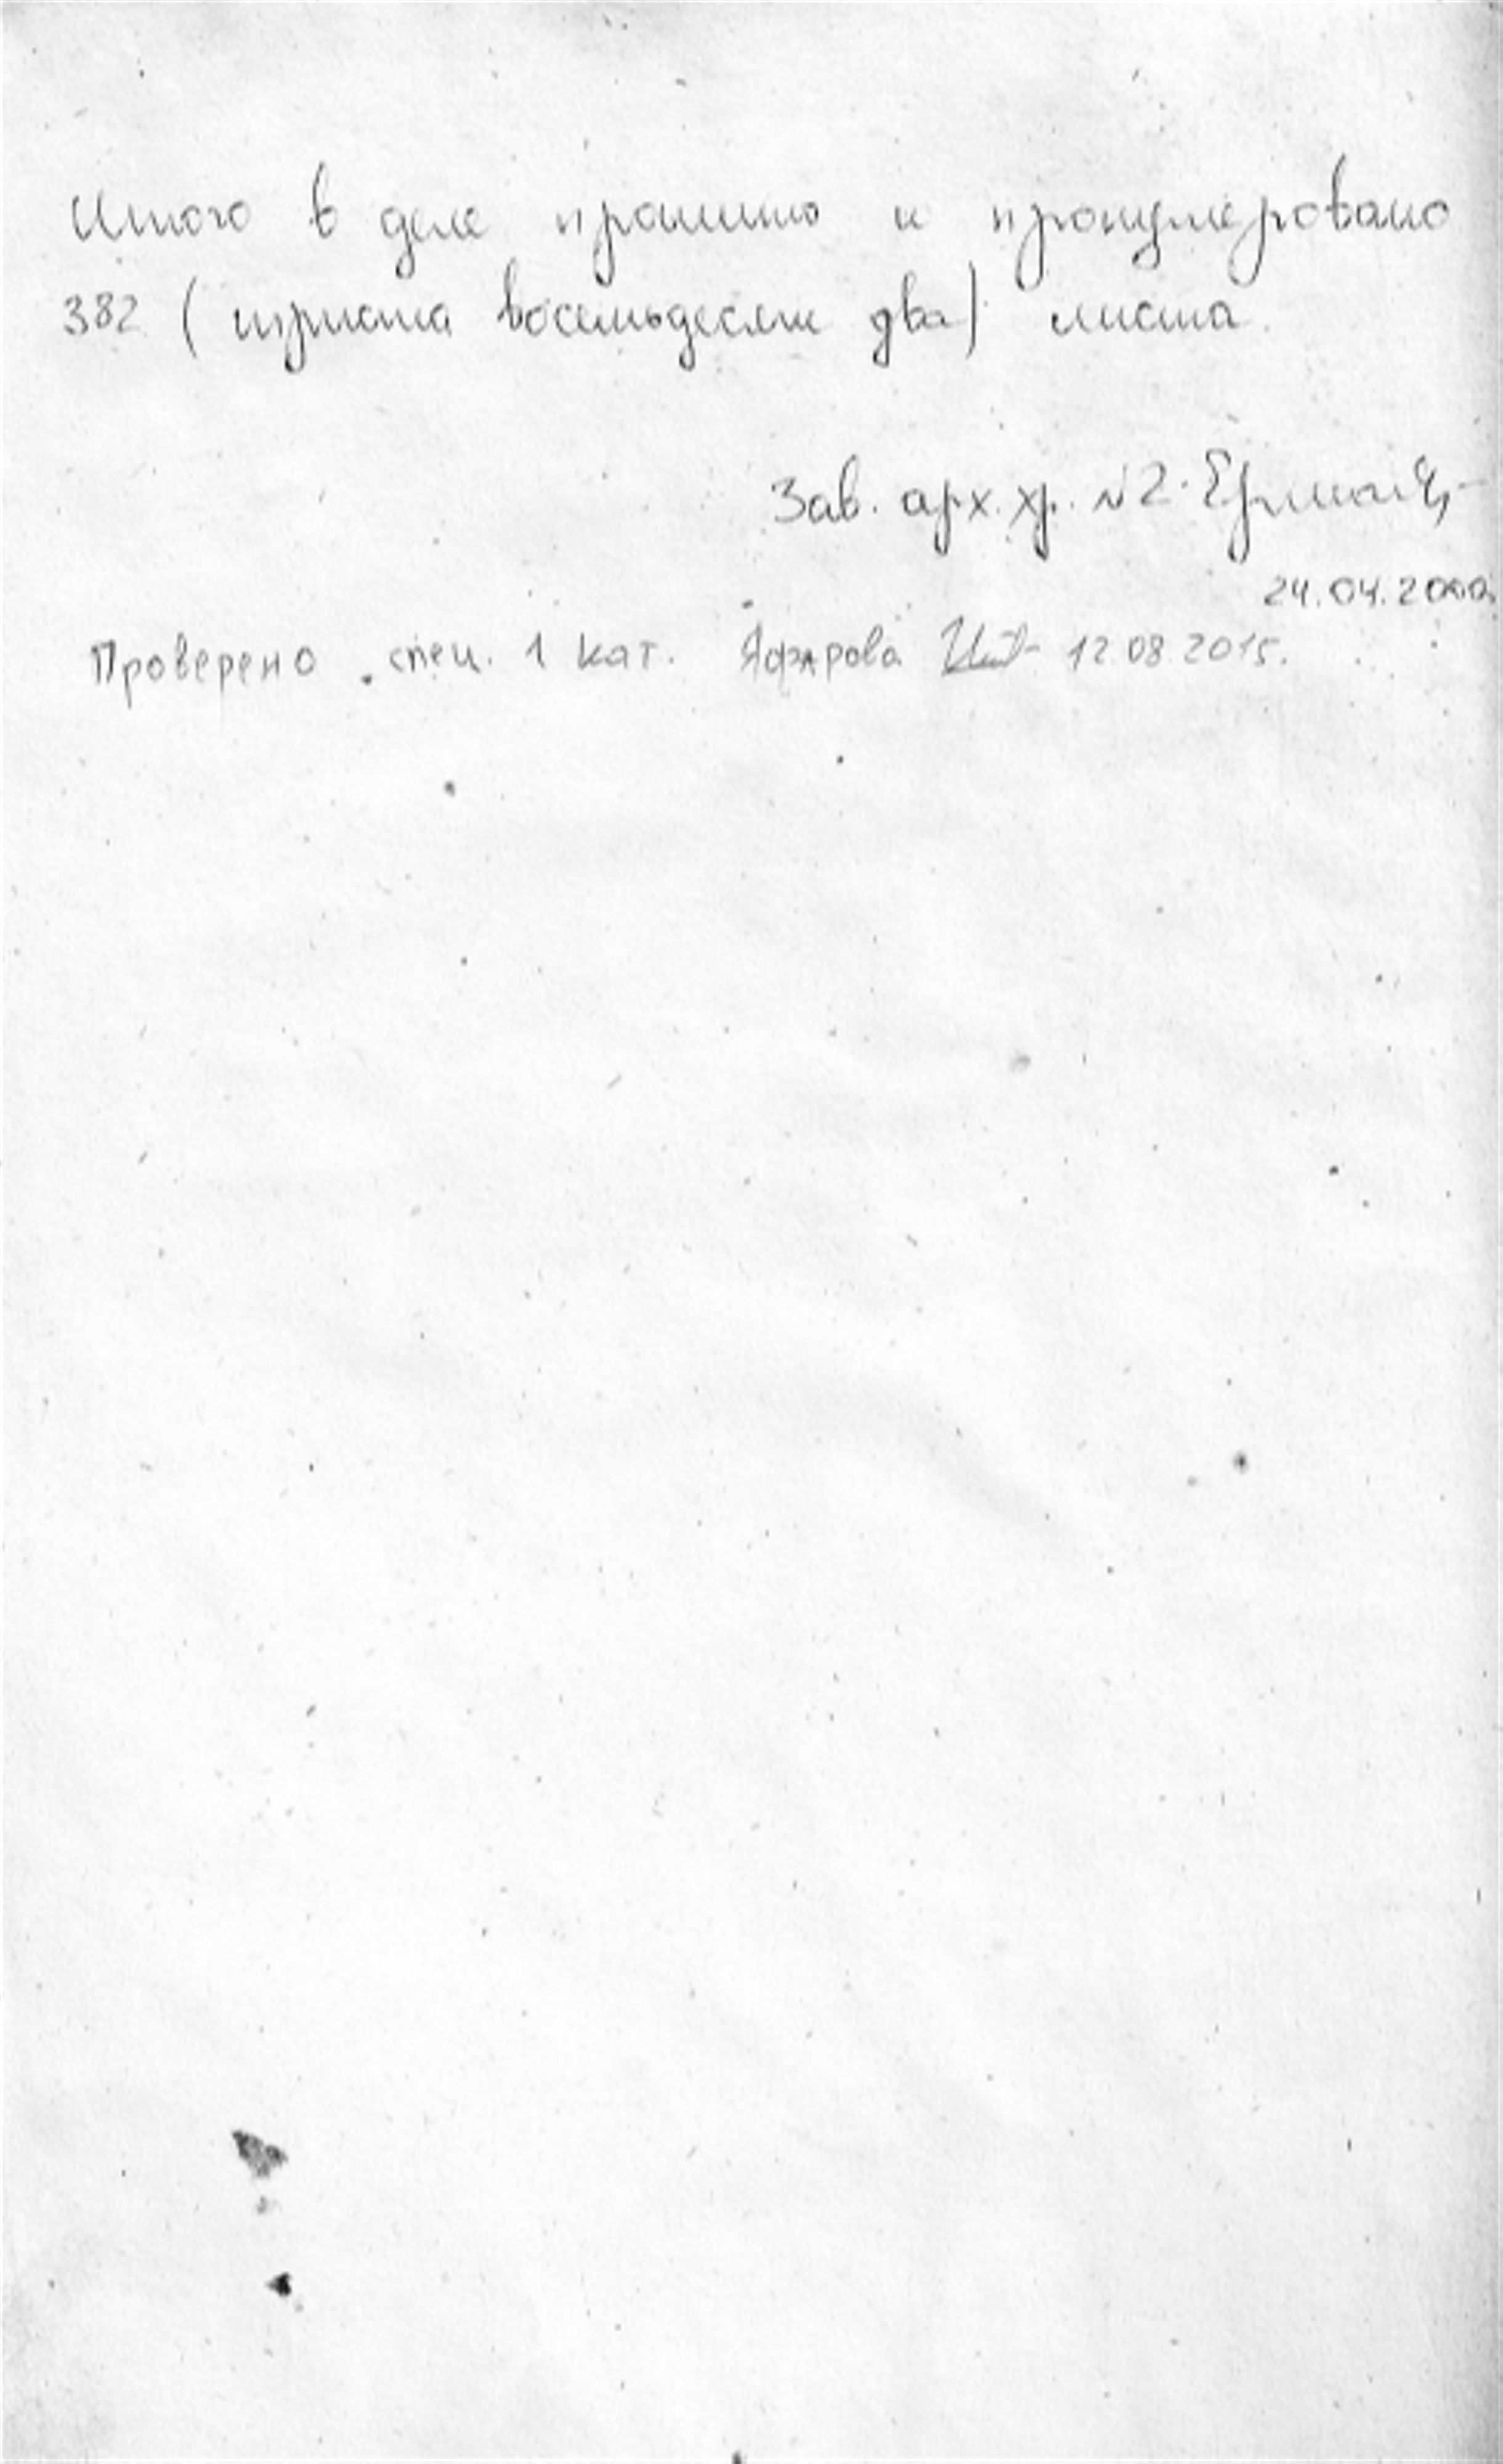 Итого в деле прошито и пронумеровано
382 (триста восемьдесят два) листа.
Зав. арх. хр. №2.
24.04.2000.
Проверено спец. 1 кат. Яфарова 12 08 2015.